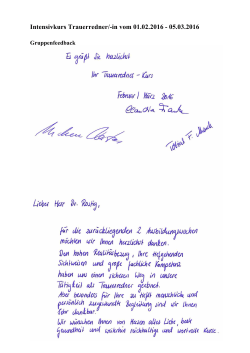 Intensivkurs Trauerredner/-in vom 01.02.2016 - 05.03.2016
Gruppenfeedback
Es grüßt Sie herzlichst
Ihr Trauerredner - Kurs
Februar / März 2016
Claudia
Lieber Herr Dr.
für die zurückliegenden 2 Ausbildungswochen
möchten wir Ihnen herzlichst danken.
Den hohen Realitätsbezug, Ihre tiefgehenden
Sichtweisen und große fachliche Kompetenz
haben uns einen sicheren Weg in unsere
Tätigkeit als Trauerredner geebnet.
Ganz besonders für Ihre so tiefst menschliche und
persönlich zugewandte Begleitung sind wir Ihnen
sehr dankbar.
Wir wünschen Ihnen von Herzen alles Liebe, beste
Gesundheit und weiterhin reichhaltige und wertvolle Kurse.